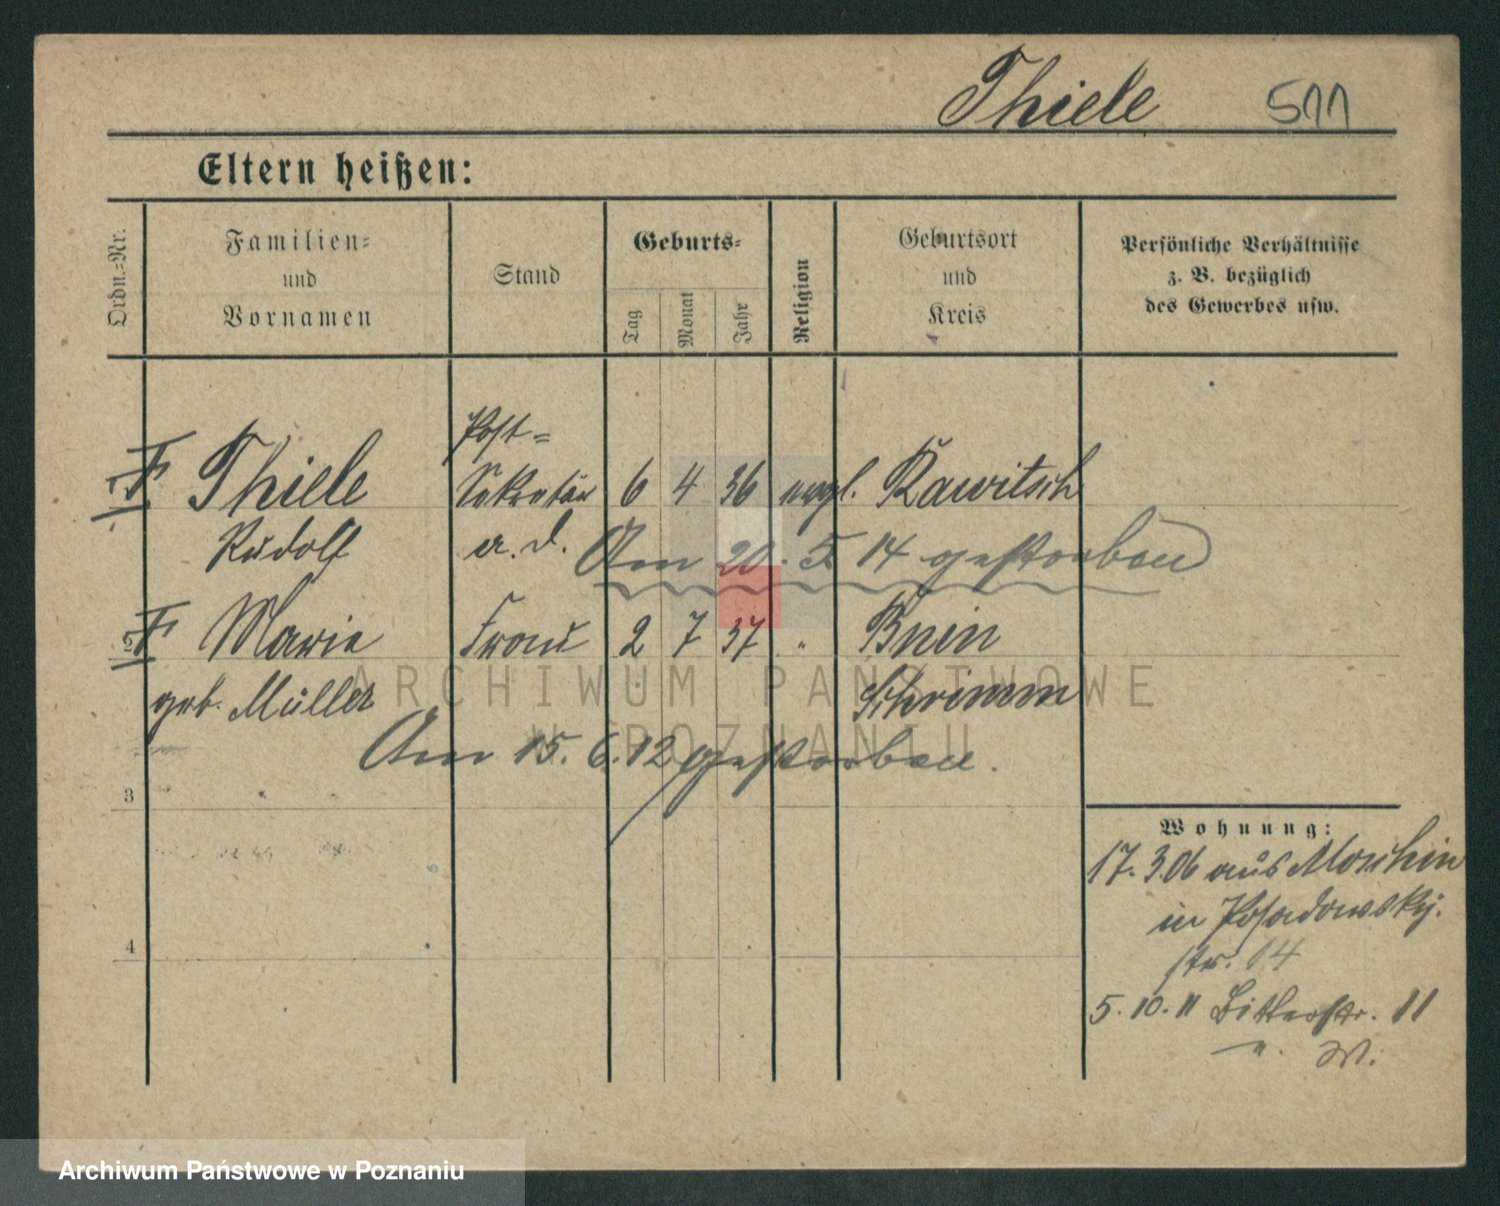 Thiele 511
Eltern heißen:
Ordn.=Nr.
Familien=
und
Vornamen
Stand
Geburts=
Tag
Monat
Jahr
Religion
Geburtsort
und
Kreis
Persönliche Verhältnisse
z. B. bezüglich
des Gewerbes usw.
Post=
1 Thiele Sekretär 6 4 36 evgl. Rawitsch
Rudolf a. D.
Am 20. 5. 14 gestorben
2 Marie Frau 2 7 37 " Bnin
geb. Müller Schrimm
Am 15. 6. 12 gestorben.
3
4
Wohnung:
17. 3. 06 aus Moschin
in Posadowsky.
str. 14
5. 10. 11 Bitterstr. 11
ARCHIWUM PAŃSTWOWE
W POZNANIU
Archiwum Państwowe w Poznaniu